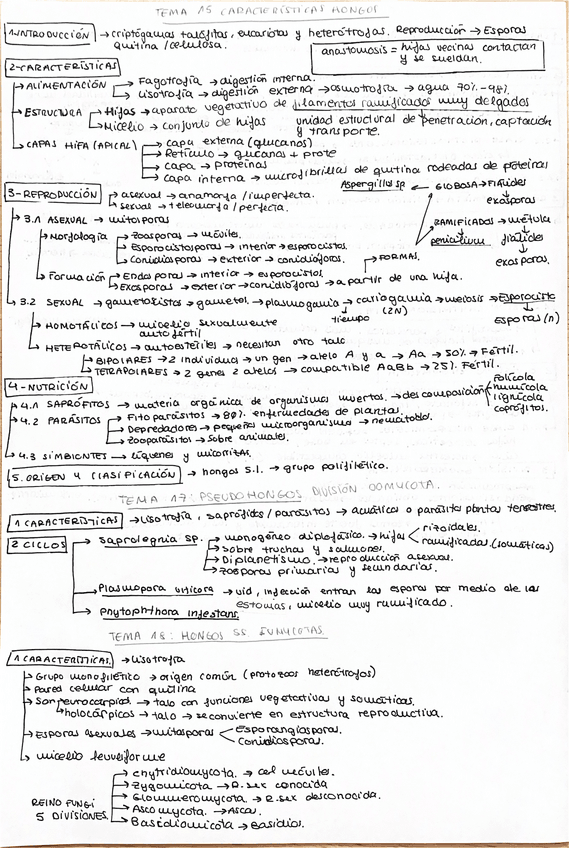 TEMA 15 CARACTERÍSTICAS HONGOS
1-INTRODUCCIÓN → criptógamas talófitas, eucariotas y heterótrofas. Reproducción → Esporas
quitina/celulosa.
anastomosis = hifas vecinas contactan
y se sueldan.
2-CARACTERÍSTICAS
→ ALIMENTACIÓN → Fagotrofía → digestión interna.
→ Lisotrofía → digestión externa → osmotrofía → agua 70%-98%
→ ESTRUCTURA → Hifas → aparato vegetativo de filamentos ramificados muy delgados
→ Micelio → conjunto de hifas unidad estructural de penetración, captación
y transporte.
→ CAPAS HIFA (APICAL) → capa externa (glucanos)
→ Retículo → glucanos + prote
→ capa → proteínas
→ capa interna → microfibrillas de quitina rodeadas de proteínas
3-REPRODUCCIÓN → asexual → anamorfa/imperfecta.
→ sexual → teleomorfa/perfecta.
Aspergillus sp ← GLOBOSA → Fiálides
exosporas
→ 3.1 ASEXUAL → mitosporas
RAMIFICADOS → métula
penicillium fiálides
exosporas.
→ Morfología → Zoosporas → móviles.
→ Esporocistosporas → interior → esporocistos.
→ Conidiosporas → exterior → conidióforos.
→ FORMAS
→ Formación → Endosporas → interior → esporocistos.
→ Exosporas → exterior → conidióforas → a partir de una hifa.
→ 3.2 SEXUAL → gametocistos → gametos → plasmogamia → cariogamia → meiosis → Esporocisto
tiempo (2N) Esporas (n)
→ HOMOTÁLICOS → micelio sexualmente
autofértil
→ HETEROTÁLICOS → autoestériles → necesitan otro talo
→ BIPOLARES → 2 individuos → un gen → alelo A y a → Aa → 50% → Fértil.
→ TETRAPOLARES → 2 genes 2 alelos → compatible AaBb → 25% Fértil.
4-NUTRICIÓN
→ 4.1 SAPRÓFITOS → materia orgánica de organismos muertos. → descomposición
folícola
humícola
lignícola
coprófitos.
→ 4.2 PARÁSITOS → Fitoparásitos → 80% enfermedades de plantas.
→ Depredadores → pequeños microorganismos → nematodos.
→ Zooparásitos → sobre animales.
→ 4.3 SIMBIONTES → líquenes y micorrizas.
5. ORIGEN Y CLASIFICACIÓN → hongos s.l. → grupo polifilético.
TEMA 17: PSEUDOHONGOS DIVISIÓN OOMYCOTA.
1 CARACTERÍSTICAS → Lisotrofía, saprófidos/parásitos → acuáticos o parásitos plantas terrestres.
2 CICLOS → Saprolegnia sp. → monogéneo diplofásico. → hifas rizoidales.
ramificadas (somáticas)
→ sobre truchas y salmones.
→ Diplanetismo → reproducción asexual.
→ zoosporas primarias y secundarias.
→ Plasmopora viticora → vid, infección entran las esporas por medio de los
estomas, micelio muy ramificado.
→ Phytophthora infestans.
TEMA 18: HONGOS SS. EUMYCOTAS.
1 CARACTERÍSTICAS. → Lisotrofía
→ Grupo monofilético → origen común (protozoos heterótrofos)
→ Pared celular con quitina
→ Son eurocárpidos → talo con funciones vegetativas y somáticas.
→ holocárpicos → talo → se convierte en estructura reproductiva.
→ Esporas asexuales → mitosporas Esporangiosporas.
Conidiosporas.
→ micelio levuliforme
REINO FUNGI
5 DIVISIONES.
→ Chytridiomycota. → cel móviles.
→ Zygomicota → R. sex conocida
→ Glommeromycota. → R. sex desconocida.
→ Ascomycota. → Ascas.
→ Basidiomicota → Basidios.